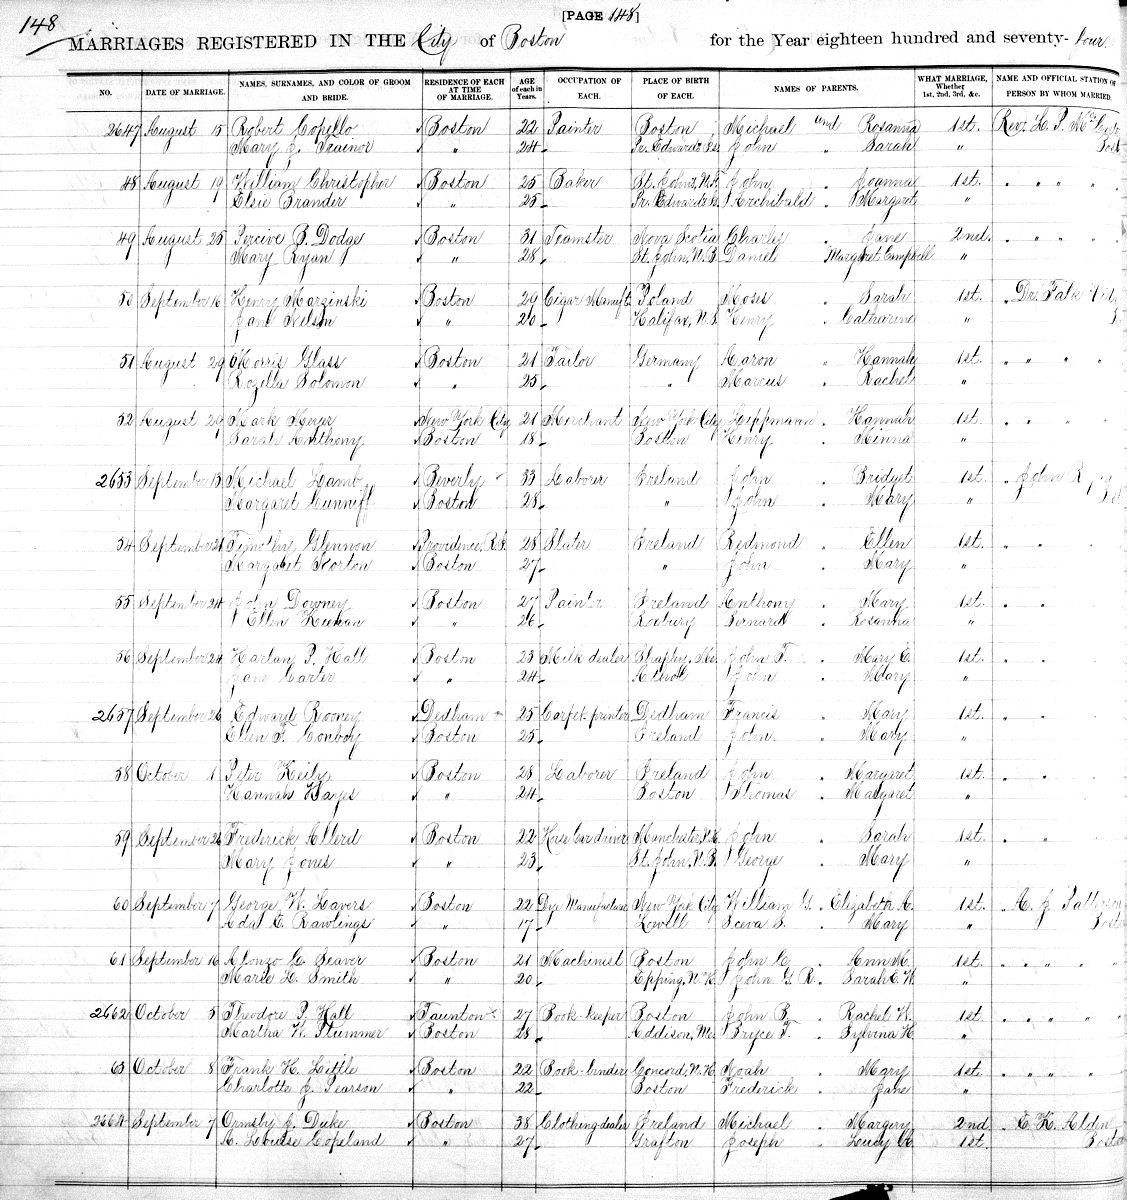 148
[PAGE 148]
MARRIAGES REGISTERED IN THE City of Boston for the Year eighteen hundred and seventy-four
NO. DATE OF MARRIAGE. NAMES, SURNAMES, AND COLOR OF GROOM AND BRIDE. RESIDENCE OF EACH AT TIME OF MARRIAGE. AGE of each in Years. OCCUPATION OF EACH. PLACE OF BIRTH OF EACH. NAMES OF PARENTS. WHAT MARRIAGE, Whether 1st, 2nd, 3rd, &c. NAME AND OFFICIAL STATION OF PERSON BY WHOM MARRIED.
2647 August 15 Robert Copello Boston 22 Painter Boston Michael and Rosanna 1st. Rev. L. P.
Mary J. Trainor " 24 Pr. Edward's Isl John . Sarah "
48 August 19 William Christopher Boston 25 Baker St. John, N.F. John . Joanna 1st. . " " " "
Elsie Brander " 25 Pr. Edward's Is. Archibald . Margaret "
49 August 25 Percive B. Dodge Boston 31 Teamster Nova Scotia Charles . Jane 2nd. . " " " "
Mary Ryan " 28 St. John, N.B. Daniel Margaret Campbell "
50 September 16 Henry Marzinski Boston 29 Cigar Manuft. Poland Moses . Sarah 1st. . Dr. Falk
Jane Nelson " 20 Halifax, N.S. Henry . Catharine "
51 August 29 Morris Glass Boston 21 Tailor Germany Aaron " Hannah 1st. " " " "
Rozella Solomon " 25 " Marcus . Rachel "
52 August 29 Mark Meyer New York City 21 Merchant New York City Lippmann . Hannah 1st. . " " "
Sarah Anthony Boston 18 Boston Henry . Minna "
2653 September 13 Michael Lamb Beverly 33 Laborer Ireland John . Bridget 1st. . John
Margaret Cunniff Boston 28 " John . Mary "
54 September 21 Timothy Glennon Providence, R.I. 28 Slater Ireland Redmond . Ellen 1st. " "
Margaret Norton Boston 27 " John . Mary "
55 September 24 John Downey Boston 27 Painter Ireland Anthony . Mary 1st. " "
Ellen Keenan " 26 Roxbury Bernard . Rosanna "
56 September 24 Harlan P. Hall Boston 23 Milk dealer Shapley, Me. John T. . Mary E. 1st. " "
Jane Carter " 24 Athol John . Mary "
2657 September 26 Edward Rooney Dedham 25 Carpet-printer Dedham Francis . Mary 1st. " "
Ellen F. Conboy Boston 25 Ireland John . Mary "
58 October 1 Peter Keily Boston 28 Laborer Ireland John . Margaret 1st. " "
Hannah Hayes " 24 Boston Thomas . Margaret "
59 September 26 Frederick Allerd Boston 22 Horse Car driver Manchester, N.H. John . Sarah 1st. " "
Mary Jones " 23 St. John, N.B. George . Mary "
60 September 7 George W. Lavers Boston 22 Dye Manufacturer New York City William G. . Elizabeth A. 1st. . A. J. Patterson
Ada E. Rawlings " 17 Lowell Sceva S. . Mary " Boston
61 September 16 Alonzo G. Seaver Boston 21 Machinist Boston John C. . Ann M. 1st. . " " " "
Marie L. Smith " 20 Epping, N.H. John G. R. . Sarah E. W. "
2662 October 5 Theodore P. Hall Taunton 27 Book-keeper Boston John B. . Rachel W. 1st. . " " " "
Martha W. Plummer Boston 28 Addison, Me. Bryce T. . Sylvina H. "
63 October 8 Frank H. Little Boston 22 Book-binder Concord, N.H. Noah . Mary 1st. . " " " "
Charlotte J. Pearson " 22 Boston Frederick . Jane "
2664 September 7 Ormsby J. Duke Boston 38 Clothing-dealer Ireland Michael . Margery 2nd . E. K. Alden
A. Louise Copeland " 27 Grafton Joseph . Lucy A. 1st. Boston